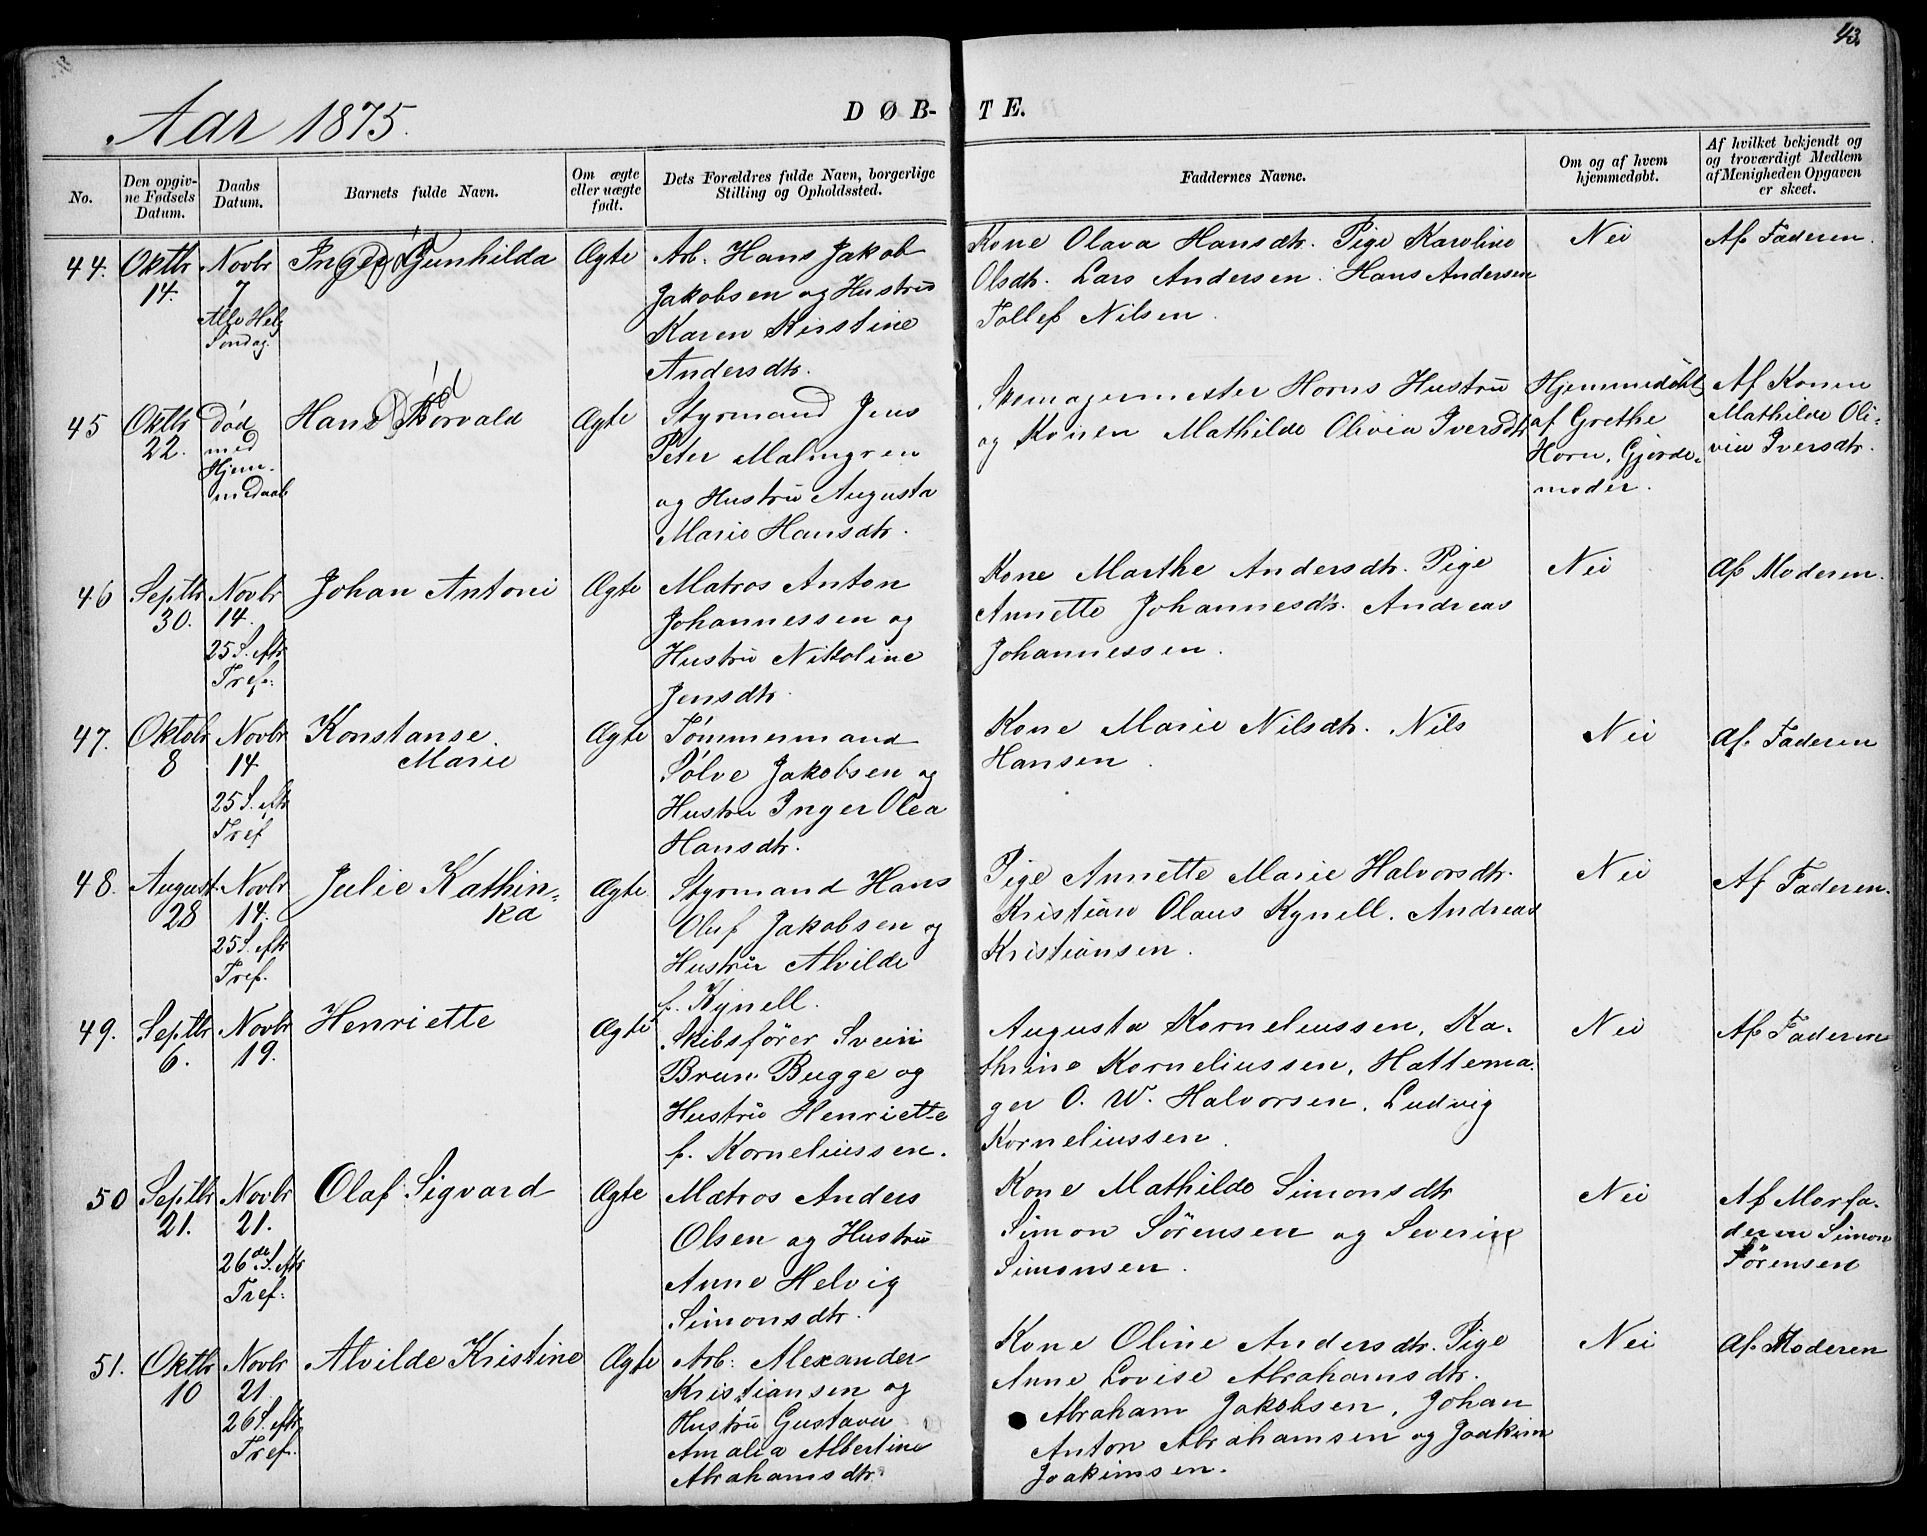 43.
Aar 1875.
DØB-TE.
No.
Den opgiv-
ne Fødsels
Datum.
Daabs
Datum.
Barnets fulde Navn.
Om ægte
eller uægte
født.
Dets Forældres fulde Navn, borgerlige
Stilling og Opholdssted.
Faddernes Navne.
Om og af hvem
hjemmedøbt.
Af hvilket bekjendt og
og troværdigt Medlem
af Menigheden Opgaven
er skeet.
44.
Oktbr
14.
Novbr
7
Alle Helg
Søndag.
Inger Gunhilda
død
Ægte
Arb. Hans Jakob
Jakobsen og Hustru
Karen Kirstine
Andersdtr.
Kone Olava Hansdtr. Pige Karoline
Olsdtr. Lars Andersen. Hans Andersen
Tollef Nilsen.
Nei
Af Faderen.
45
Oktbr
22.
død
med
Hjem-
medaab
Hans Thorvald
død
Ægte
Styrmand Jens
Peter Malmgren
og Hustru Augusta
Marie Hansdtr.
Skomagermester Horns Hustru
og Konen Mathilde Olivia Iversdtr
Hjemmedøbt
af Grethe
Horn, Gjorde-
moder.
Af Konen
Mathilde Oli-
via Iversdtr.
46
Septbr
30.
Novbr
14.
25 S. eftr
Tref.
Johan Antoni
Ægte
Matros Anton
Johannessen og
Hustru Nikoline
Jensdtr.
Kone Marthe Andersdtr. Pige
Annette Johannesdtr. Andreas
Johannessen.
Nei
Af Moderen.
47.
Oktobr
8
Novbr
14
25 S. eftr
Tref
Konstanse
Marie
Ægte
Tømmermand
Sølve Jakobsen og
Hustru Inger Olea
Hansdtr.
Kone Marie Nilsdtr. Nils
Hansen.
Nei
Af Faderen
48.
August
28
Novbr
14.
25 S. eftr
Tref.
Julie Kathin-
ka
Ægte
Styrmand Hans
Oluf Jakobsen og
Hustru Alvilde
f. Kynell.
Pige Annette Marie Halvorsdtr.
Kristian Olaus Kynell. Andreas
Kristiansen.
Nei
Af Faderen.
49.
Septbr
6.
Novbr
19.
Henriette
Ægte
Skibsfører Svein
Brun Bugge og
Hustru Henriette
f. Korneliussen.
Augusta Korneliussen, Ka-
thrine Korneliussen, Hattema-
ger O. W. Halvorsen, Ludvig
Korneliussen.
Nei
Af Faderen
50
Septbr
21.
Novbr
21.
26de S. eftr
Tref.
Olaf Sigvard
Ægte
Matros Anders
Olsen og Hustru
Anne Helvig
Simonsdtr.
Kone Mathilde Simonsdtr
Simon Sørensen og Severin
Simonsen.
Nei
Af Morfa-
deren Simon
Sørensen
51.
Oktbr
10
Novbr
21.
26 S. eftr
Tref.
Alvilde Kristine
Ægte
Arb: Alexander
Kristiansen og
Hustru Gustava
Amalia Albertine
Abrahamsdtr.
Kone Oline Andersdtr. Pige
Anne Lovise Abrahamsdtr.
Abraham Jakobsen, Johan
Anton Abrahamsen og Joakim
Joakimsen.
Nei
Af Moderen